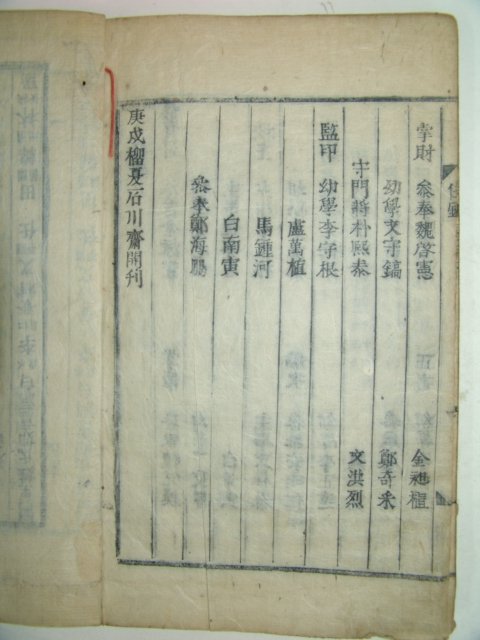 掌財 叅奉魏啓憲 金昶權
幼學文守鎬 鄭奇采
守門將朴熙泰 文漢烈
監印 幼學李守根
盧萬植
馬鍾河
白南寅
叅奉鄭海鵬
庚戌榴夏石川齋開刊